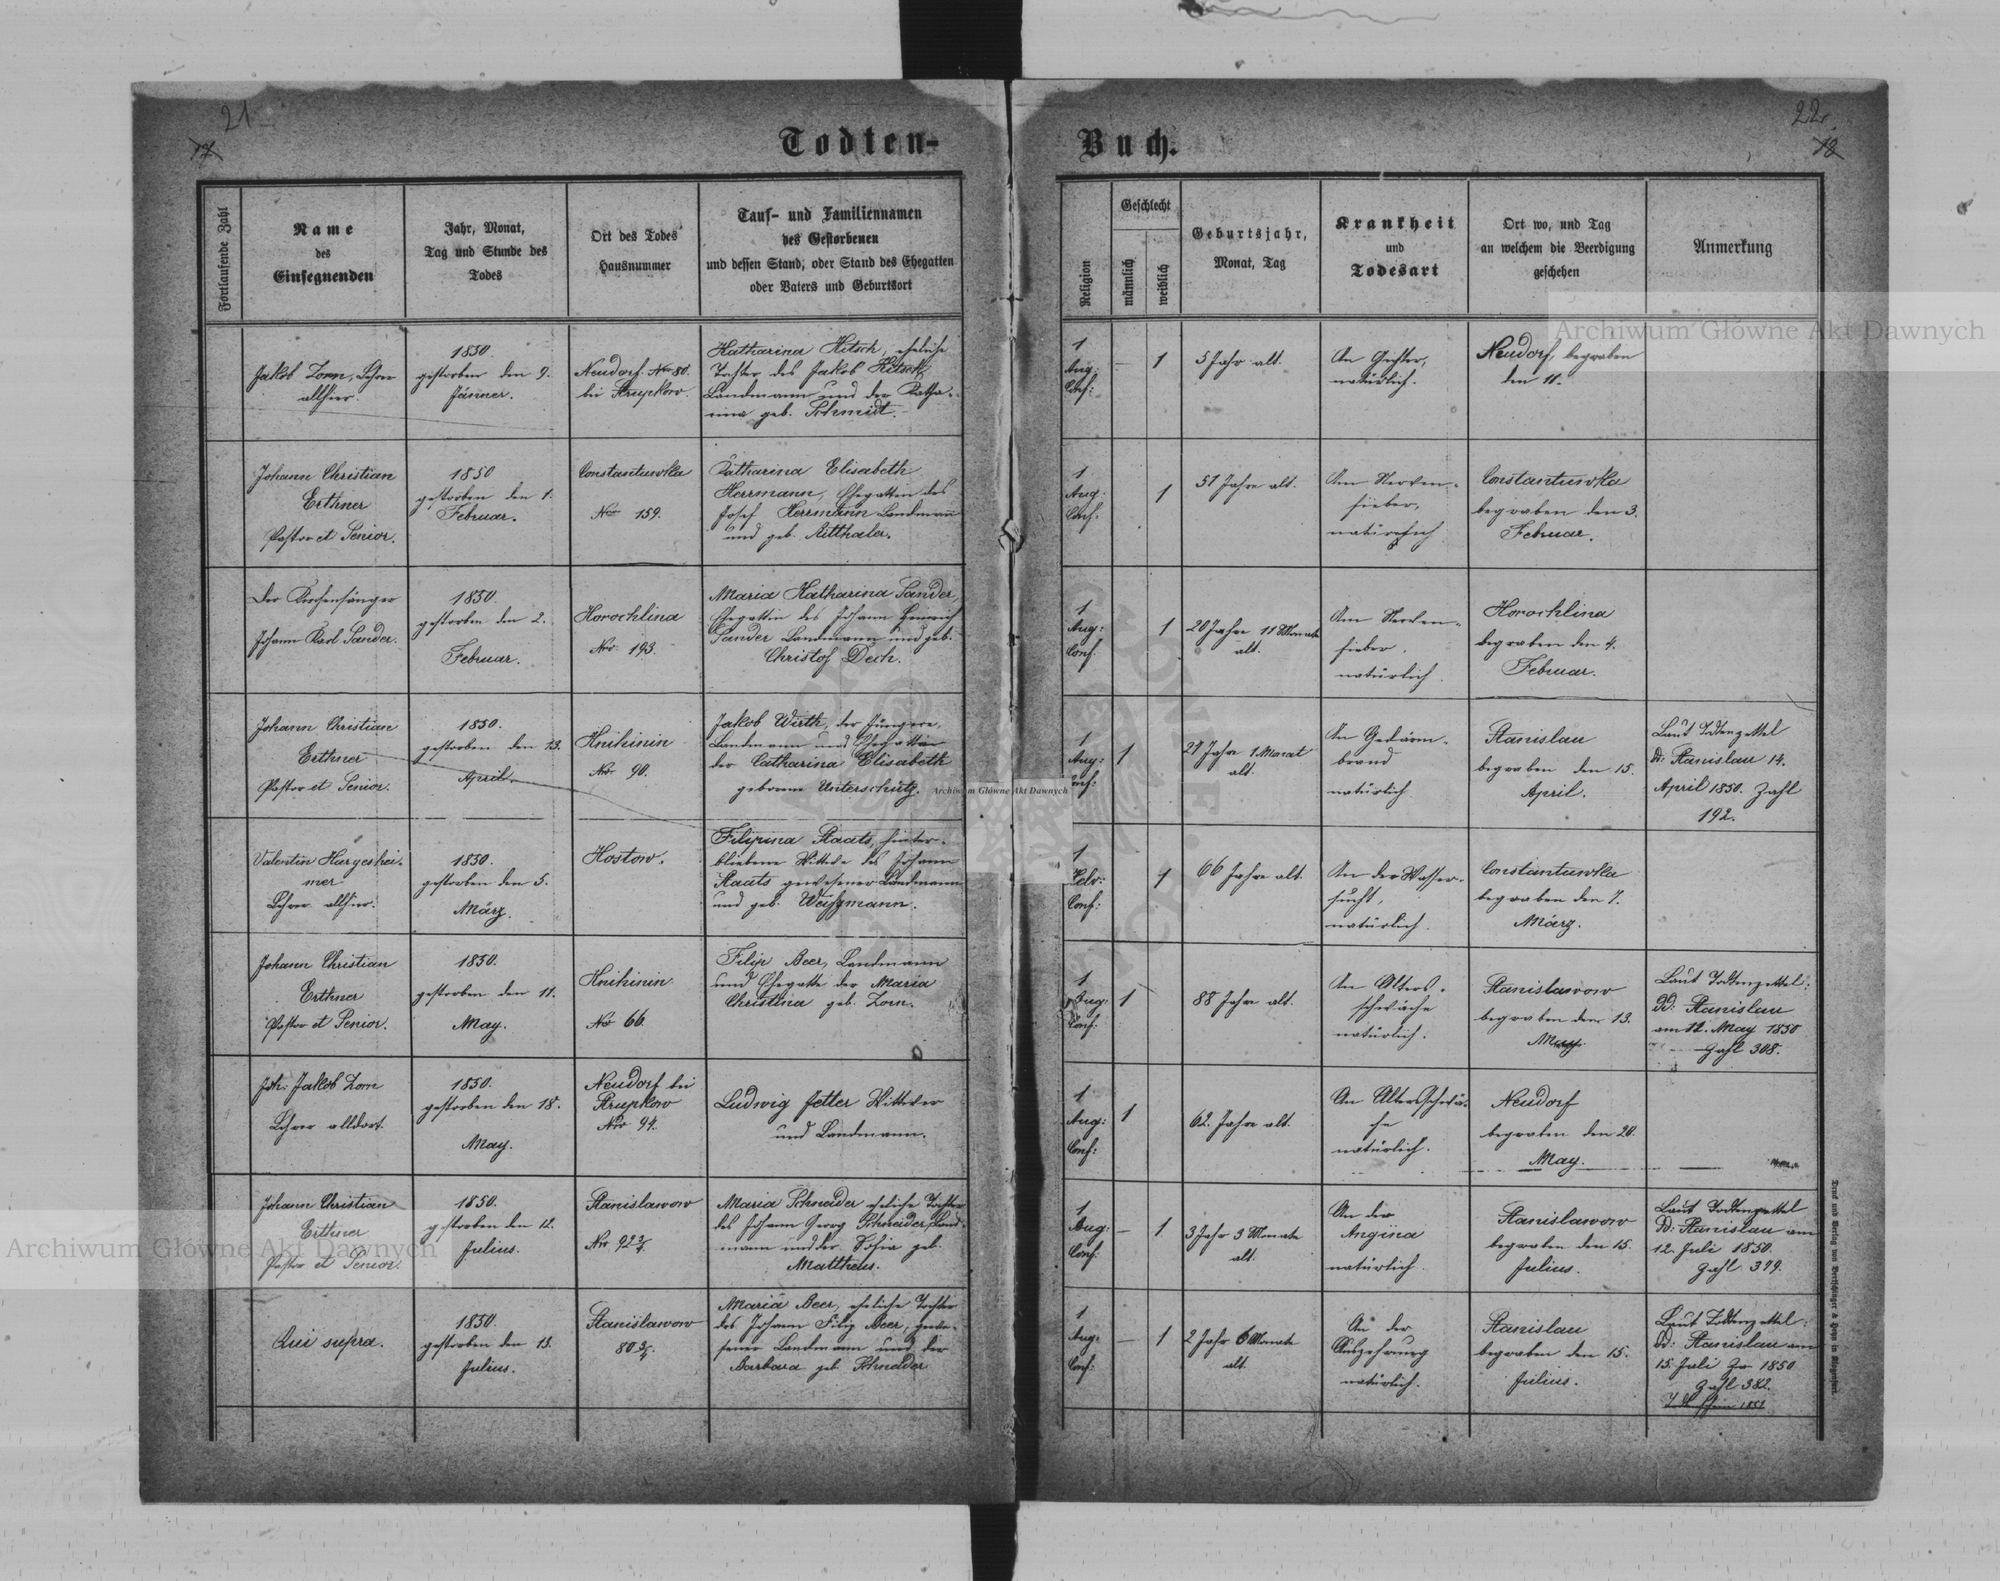 21
17
22.
18
Todten-
Buch.
Fortlaufende Zahl
Name
des
Einsegnenden
Jahr, Monat,
Tag und Stunde des
Todes
Ort des Todes
Hausnummer
Tauf- und Familiennamen
des Gestorbenen
und dessen Stand, oder Stand des Ehegatten
oder Vaters und Geburtsort
Religion
Geschlecht
männlich
weiblich
Geburtsjahr,
Monat, Tag
Krankheit
und
Todesart
Ort wo, und Tag
an welchem die Beerdigung
geschehen
Anmerkung
Jakob Zorn, Lehrer
allhier.
1850.
gestorben den 9.
Jänner.
Neudorf Nro 80.
bei Krupkow.
Katharina Hitsch, eheliche
Tochter des Jakob Hitsch,
Landmann und der Katha-
rina geb. Schmidt.
1
Aug:
Conf:
—
1
5 Jahr alt.
natürlich.
Neudorf, begraben
den 11.
Johann Christian
Erthner
Pastor et Senior.
1850
gestorben den 1.
Februar.
Constantuwka
Nro 159.
Katharina Elisabeth
Herrmann, Ehegattin des
Josef Herrmann Landmann
und geb. Aitthaler.
1
Aug.
Conf.
1
51 Jahre alt.
Am Nerven-
fieber,
natürlich
Constantuwka
begraben den 3.
Februar.
Der Kirchensänger
Johann Karl Sander.
1850.
gestorben den 2.
Februar.
Horochlina
Nro 193.
Maria Katharina Sander,
Ehegattin des Johann Heinrich
Sander Landmann und geb:
Christof Dech.
1
Aug:
Conf.
1
20 Jahre 11 Monate
alt.
Am Nerven-
fieber,
natürlich.
Horochlina
begraben den 4.
Februar.
Johann Christian
Erthner
Pastor et Senior.
1850.
gestorben den 13.
April.
Knihinin
Nro. 90.
Jakob Wirth, der Jüngere,
Landmann und Ehegatte
der Catharina Elisabeth
geborene Unterschütz.
1
Aug:
Conf:
1
27 Jahre 1 Monat
alt.
Am Gedärm-
brand
natürlich
Stanislau
begraben den 15.
April.
Laut Todtenzettel
dd: Stanislau 14.
April 1850. Zahl
192.
Valentin Hargeshei-
mer
Lehrer allhier.
1850.
gestorben den 5.
März.
Hostow.
Filipina Staats, hinter-
bliebene Wittwe des Johann
Staats gewesener Landmann
und geb. Weißmann.
1
Helv:
Conf:
1
66 Jahre alt.
An der Wasser-
sucht,
natürlich.
Constantuwka
begraben den 7.
März.
Johann Christian
Erthner
Pastor et Senior.
1850.
gestorben den 11.
May.
Knihinin
Nro 66.
Filip Beer, Landmann
und Ehegatte der Maria
Christina geb. Zorn.
1
Aug:
Conf.
1
88 Jahre alt.
An Alters-
schwäche
natürlich.
Stanislawow
begraben den 13.
May.
Laut Todtenzettel:
dd: Stanislau
am 12. May 1850
Zahl 308.
Joh: Jakob Zorn
Lehrer alldort.
1850.
gestorben den 18.
May.
Neudorf bei
Krupkow
Nro 94.
Ludwig Jetter Wittwer
und Landmann.
1
Aug:
Conf:
1
62. Jahre alt.
An Altersschwä-
che
natürlich.
Neudorf
begraben den 20.
May.
Johann Christian
Erthner
Pastor et Senior.
1850.
gestorben den 12.
Julius.
Stanislawow
Nro 92 3/4.
Maria Schneider eheliche Tochter
des Johann Georg Schneider Land-
mann und der Sofia geb.
Mattheus.
1
Aug:
Conf.
—
1
3 Jahr 3 Monate
alt.
An der
Angina
natürlich.
Stanislawow
begraben den 15.
Julius.
Laut Todtenzettel
Dd: Stanislau am
12. Juli 1850.
Zahl 379.
Qui supra.
1850.
gestorben den 13.
Julius.
Stanislawow
80 3/4.
Maria Beer, eheliche Tochter
des Johann Filip Beer, gewe-
sener Landmann und der
Barbara geb. Schneider
1
Aug:
Conf:
—
1
2 Jahr 6 Monate
alt.
An der
Auszehrung
natürlich.
Stanislau
begraben den 15.
Julius.
Laut Todtenzettel:
Dd: Stanislau am
15. Juli 1850
Zahl 382.
Archiwum Główne Akt Dawnych
Archiwum Główne Akt Dawnych
Archiwum Główne Akt Dawnych